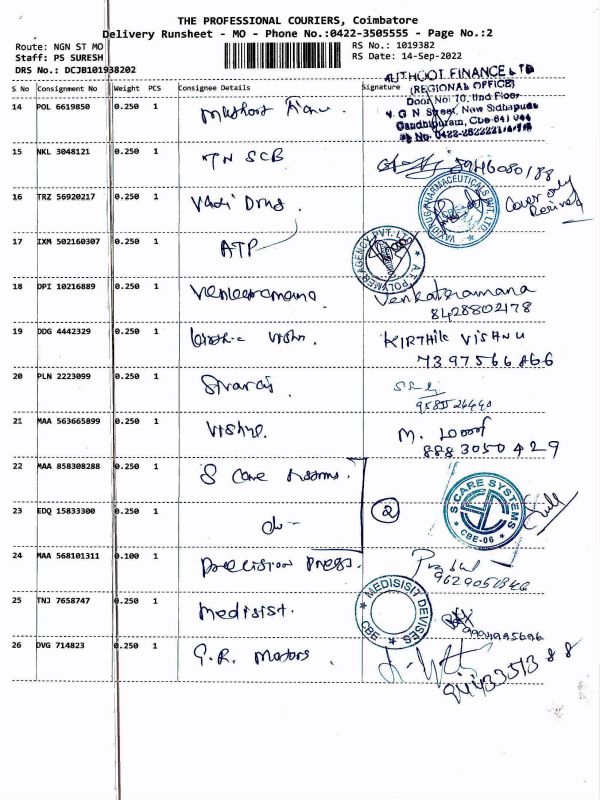 THE PROFESSIONAL COURIERS, Coimbatore
Delivery Runsheet - MO - Phone No.:0422-3505555 - Page No.:2
Route: NGN ST MO RS No.: 1019382
Staff: PS SURESH RS Date: 14-Sep-2022
DRS No.: DCJB101938202
S No Consignment No Weight PCS Consignee Details Signature
AUTHOOT FINANCE LTD
(REGIONAL OFFICE)
Door No: 70, IInd Floor
G N Street, New Sidhapudu
Gandhipuram, Cbe-641 044
14 POL 6619850 0.250 1
15 NKL 3048121 0.250 1 TN SCB
16 TRZ 56920217 0.250 1 Vasi Drug. Cover only
VAXDRUG PHARMACEUTICALS PVT. LTD.
17 IXM 502160307 0.250 1 ATP
A.T. POLYMER AGENCY PVT. LTD.
18 DPI 10216889 0.250 1 Venkataramana Venkataramana
8428802178
19 DDG 4442329 0.250 1 KIRTHIK VISHNU
7397566866
20 PLN 2223099 0.250 1 Sivaraj
21 MAA 563665899 0.250 1 Vishnu. M.
8883050429
22 MAA 858308288 0.250 1 S Care
S CARE SYSTEMS
CBE-06
23 EDQ 15833300 0.250 1 do 2
24 MAA 568101311 0.100 1 Precision Press.
9629051846
25 TNJ 7658747 0.250 1 Medisist.
MEDISISIT DEVISES
CBE
26 DVG 714823 0.250 1 G.R. Motors
9443351388